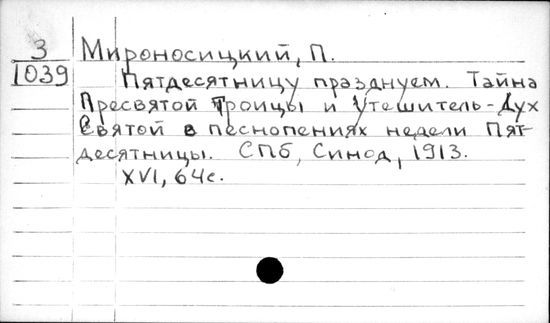 З
1039
Мироносицкий, П.
Пятдесятницу празднуем. Тайна
Пресвятой Троицы и Утешитель-Дух
Святой в песнопениях недели Пят-
десятницы. СПб, Синод, 1913.
XVI, 64с.